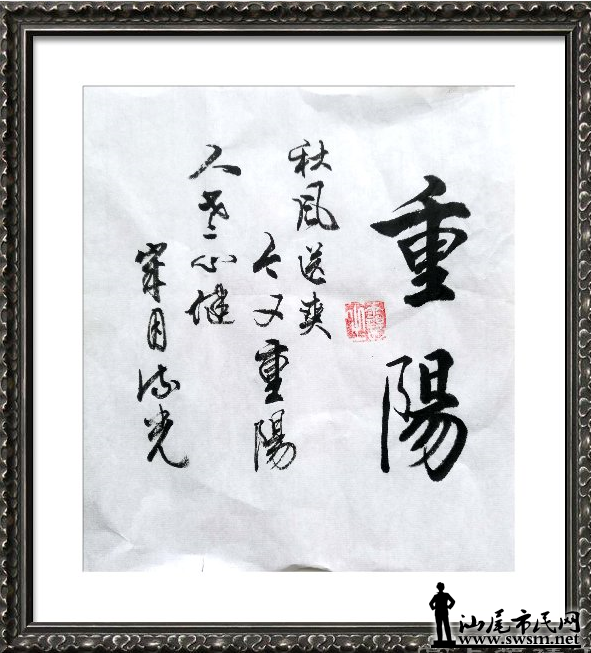 重陽
秋風送爽
今又重陽
人老心健
月流光
汕尾市民网
www.swsm.net